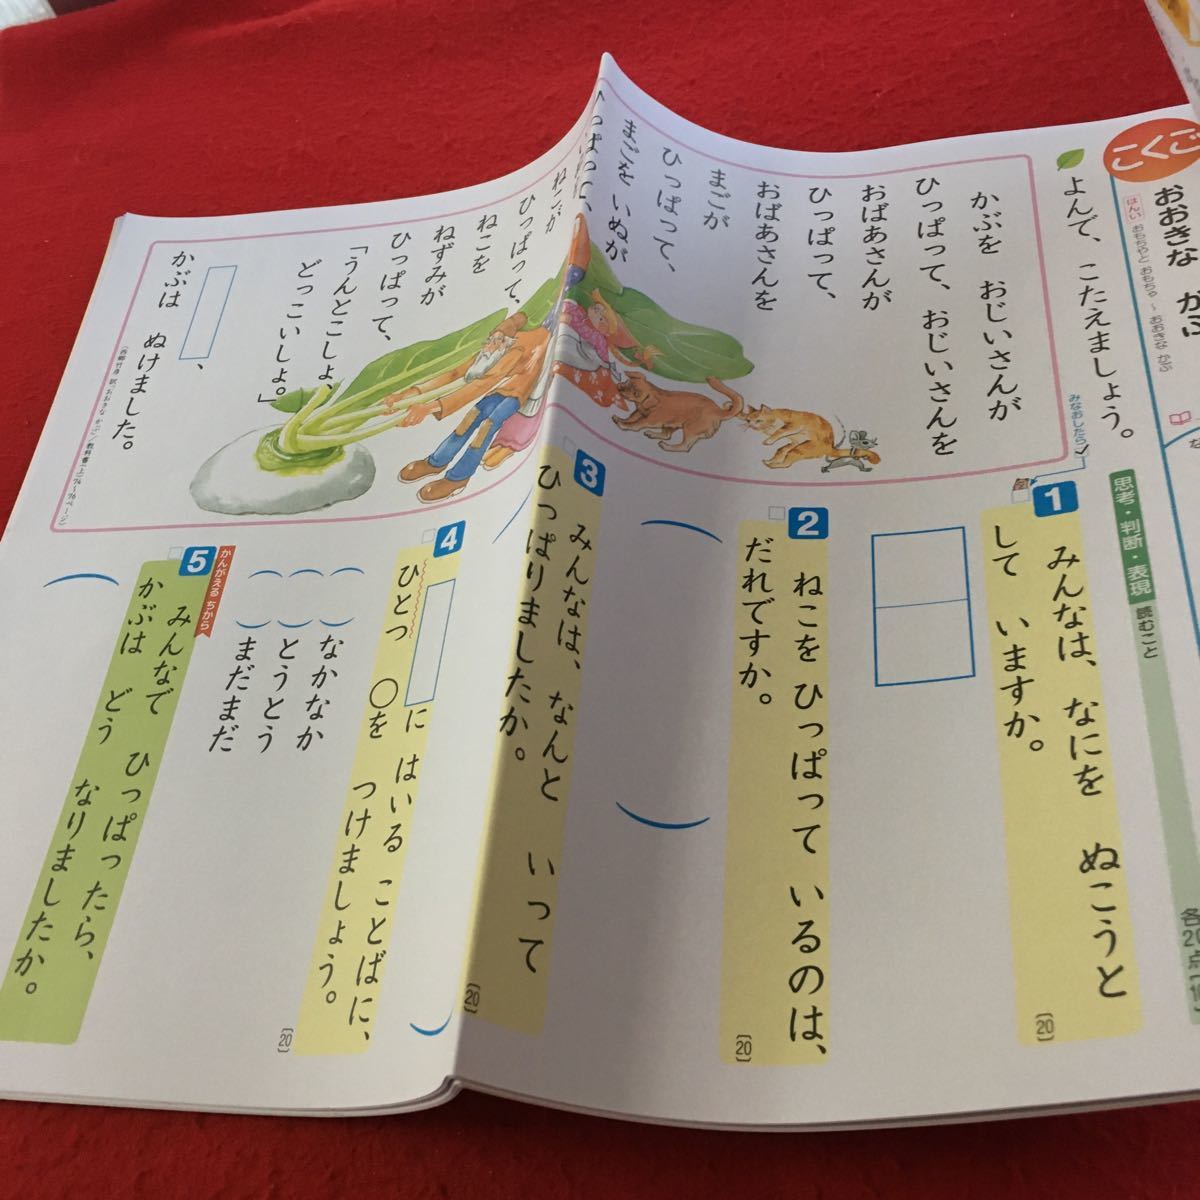 こくご
おおきな かぶ
はんい おもちゃと おもちゃ ～ おおきな かぶ
よんで、こたえましょう。
みなおしたら
かぶを おじいさんが
ひっぱって、おじいさんを
おばあさんが
ひっぱって、
おばあさんを
まごが
ひっぱって、
まごを いぬが
ねこが
ひっぱって、
ねこを
ねずみが
ひっぱって、
「うんとこしょ、
どっこいしょ。」
、
かぶは ぬけました。
思考・判断・表現 読むこと
1 みんなは、なにを ぬこうと
して いますか。
[20]
2 ねこを ひっぱって いるのは、
だれですか。
[20]
3 みんなは、なんと いって
ひっぱりましたか。
[20]
4 に はいる ことばに、
ひとつ ○を つけましょう。
[20]
なかなか
とうとう
まだまだ
かんがえる ちから
5 みんなで ひっぱったら、
かぶは どう なりましたか。